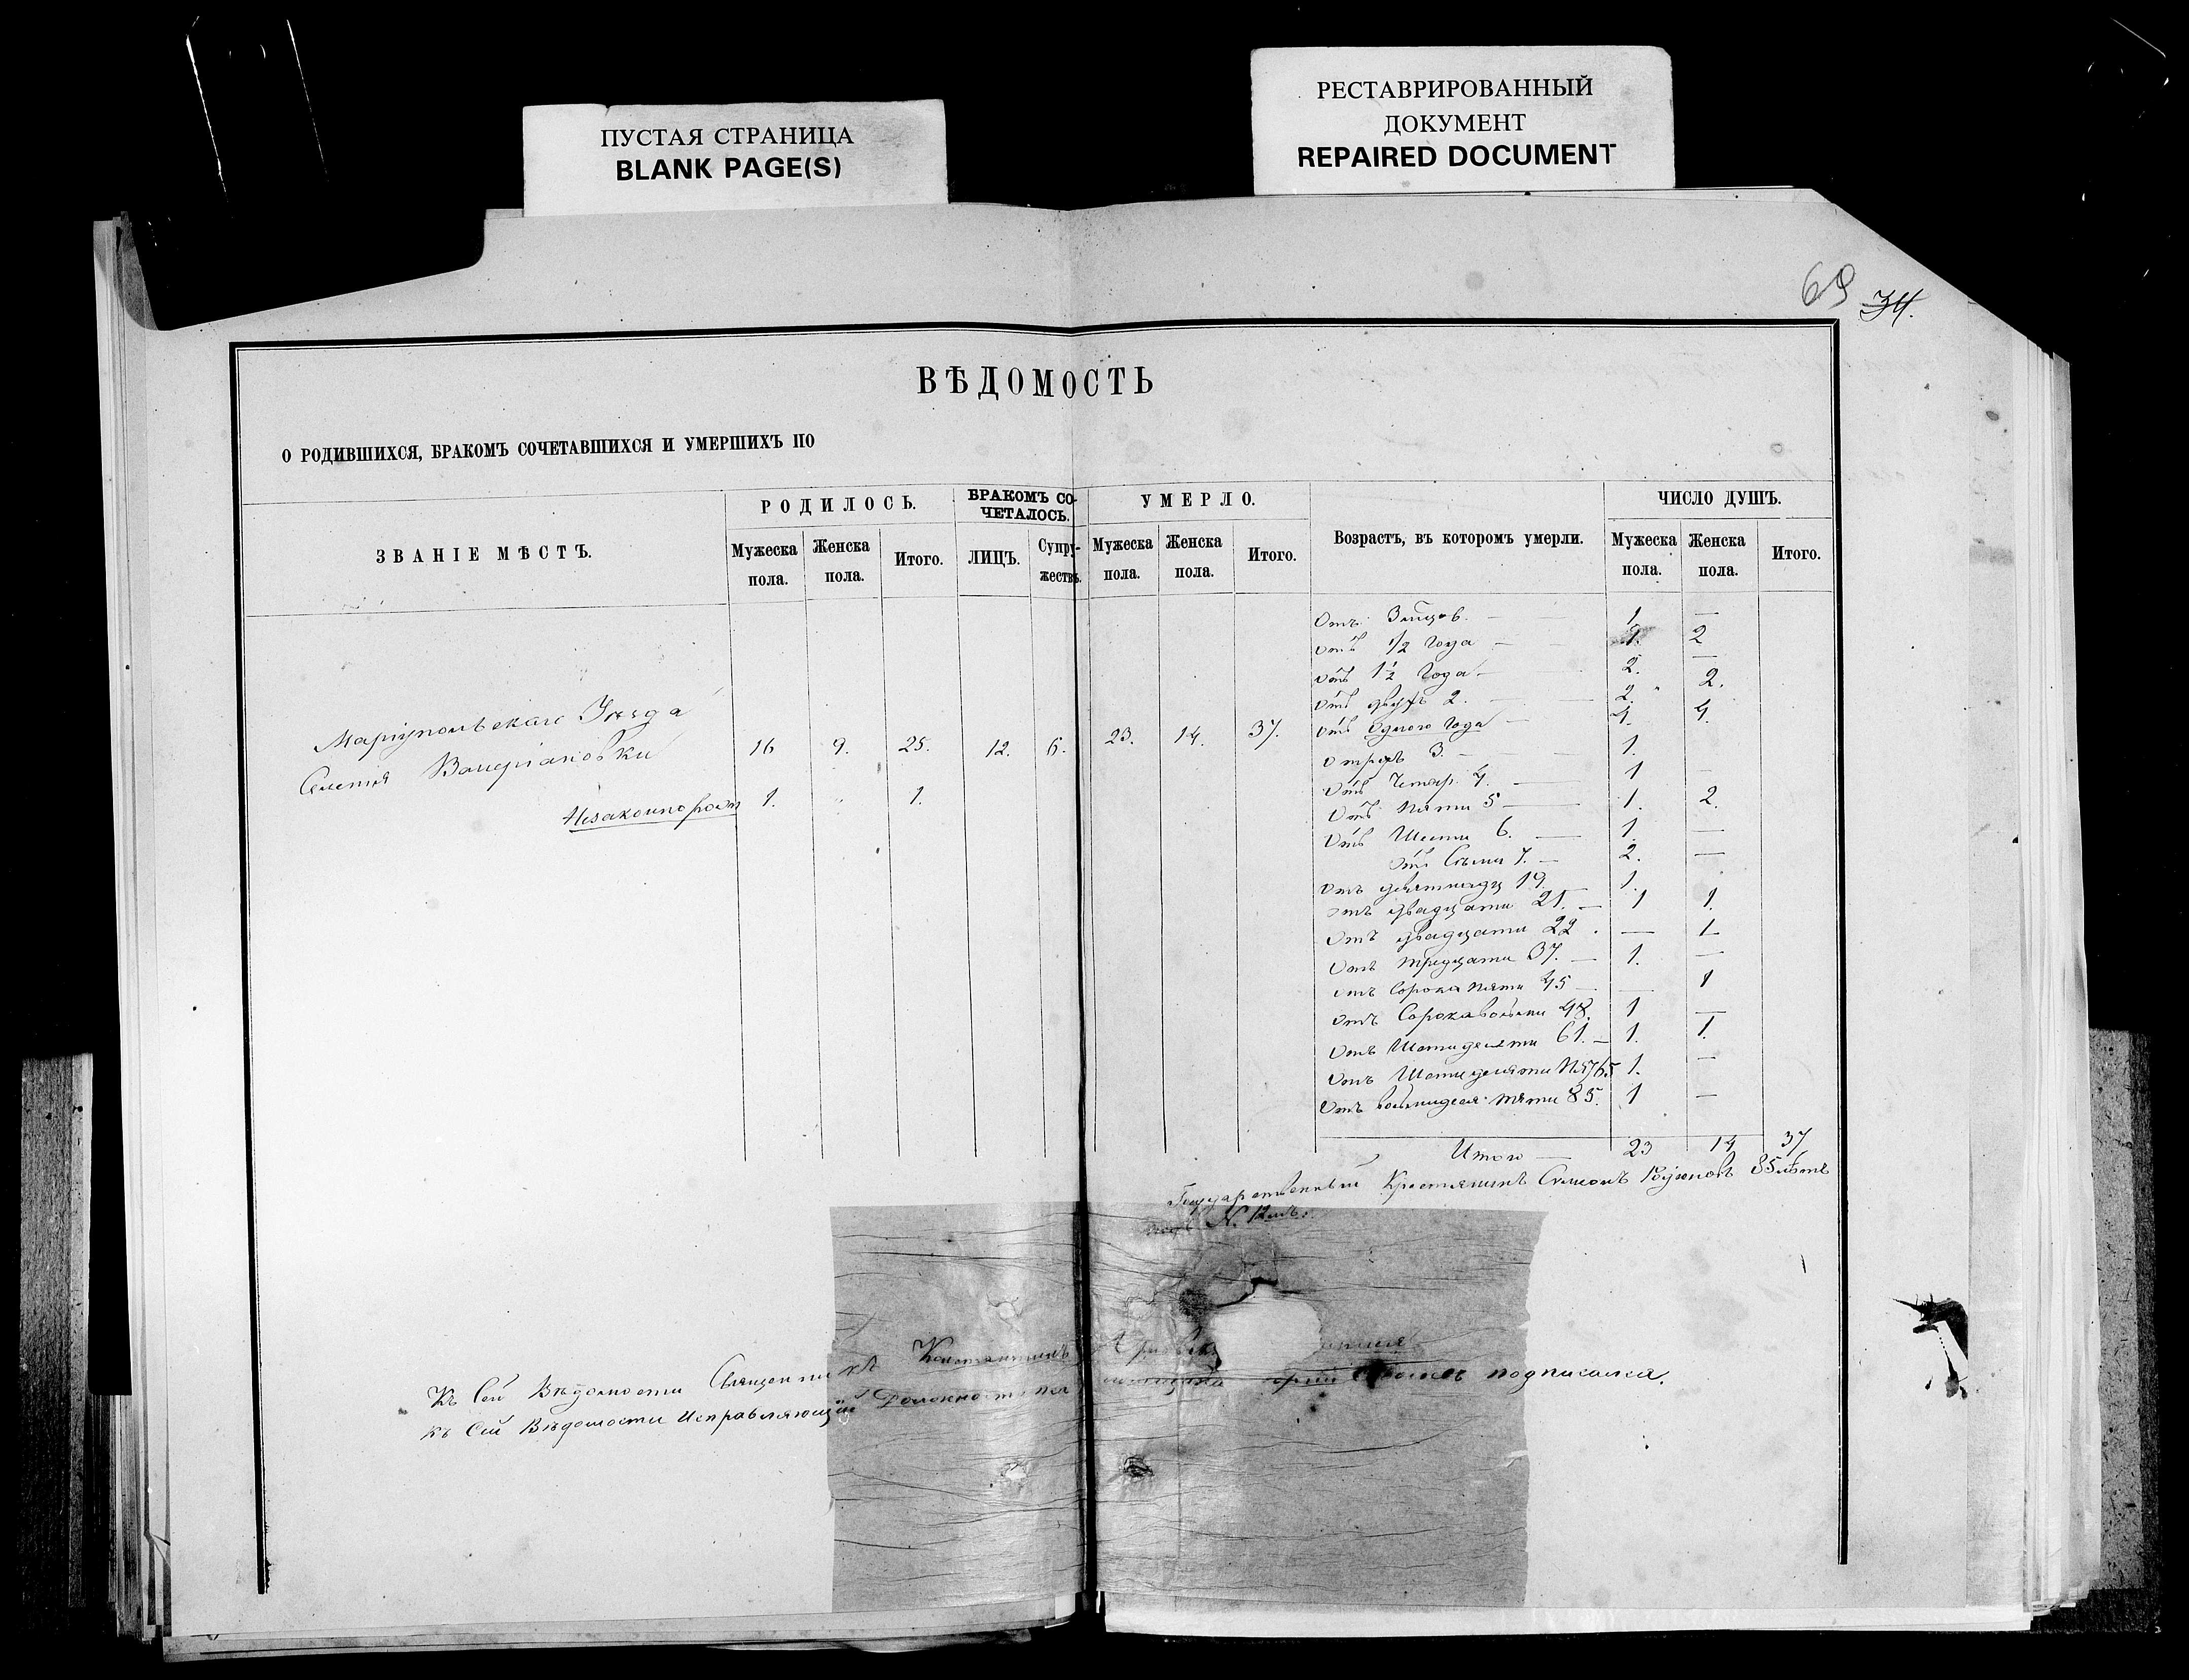 ПУСТАЯ СТРАНИЦА
BLANK PAGE(S)
РЕСТАВРИРОВАННЫЙ
ДОКУМЕНТ
REPAIRED DOCUMENT
69 34.
ВѢДОМОСТЬ
О РОДИВШИХСЯ, БРАКОМЪ СОЧЕТАВШИХСЯ И УМЕРШИХЪ ПО
ЗВАНІЕ МѢСТЪ.
РОДИЛОСЬ.
Мужеска пола.
Женска пола.
Итого.
БРАКОМЪ СОЧЕТАЛОСЬ.
ЛИЦЪ.
Супружествъ.
УМЕРЛО.
Мужеска пола.
Женска пола.
Итого.
Возрастъ, въ которомъ умерли.
ЧИСЛО ДУШЪ.
Мужеска пола.
Женска пола.
Итого.
Маріупольскаго Уѣзда
Селенія Валеріановки 16 9. 25. 12. 6. 23. 14. 37.
Незаконнорожд 1. " 1.
Отъ 1 —
Отъ 1/2 Года — 2
Отъ 1 1/2 Года — 2. —
Отъ двухъ 2. — 2. 2.
Отъ Одного Года — 4. 4.
Отъ трехъ 3. — 1.
Отъ Четыр. 4. — 1 —
Отъ Пяти 5 — 1. 2.
Отъ Шести 6. — 1. —
Отъ Семи 7. — 2. —
Отъ девятнадц 19. — 1.
Отъ двадцати 21. — 1 1.
Отъ двадцати 22. — 1
Отъ тридцати 37. — 1. —
Отъ Сорока пяти 45 — — 1
Отъ Сорокавосьми 48. 1 —
Отъ Шестидесяти 61. — 1. 1.
Отъ Шестидесяти 65 1. —
Отъ восьмидеся пяти 85. 1 —
Итого — 23 14 37
Государственный Крестьянинъ Семенъ 85 лѣтъ
N. 12
Къ Сей Вѣдомости Священникъ Константинъ
къ Сей Вѣдомости Исправляющій Должность подписался.